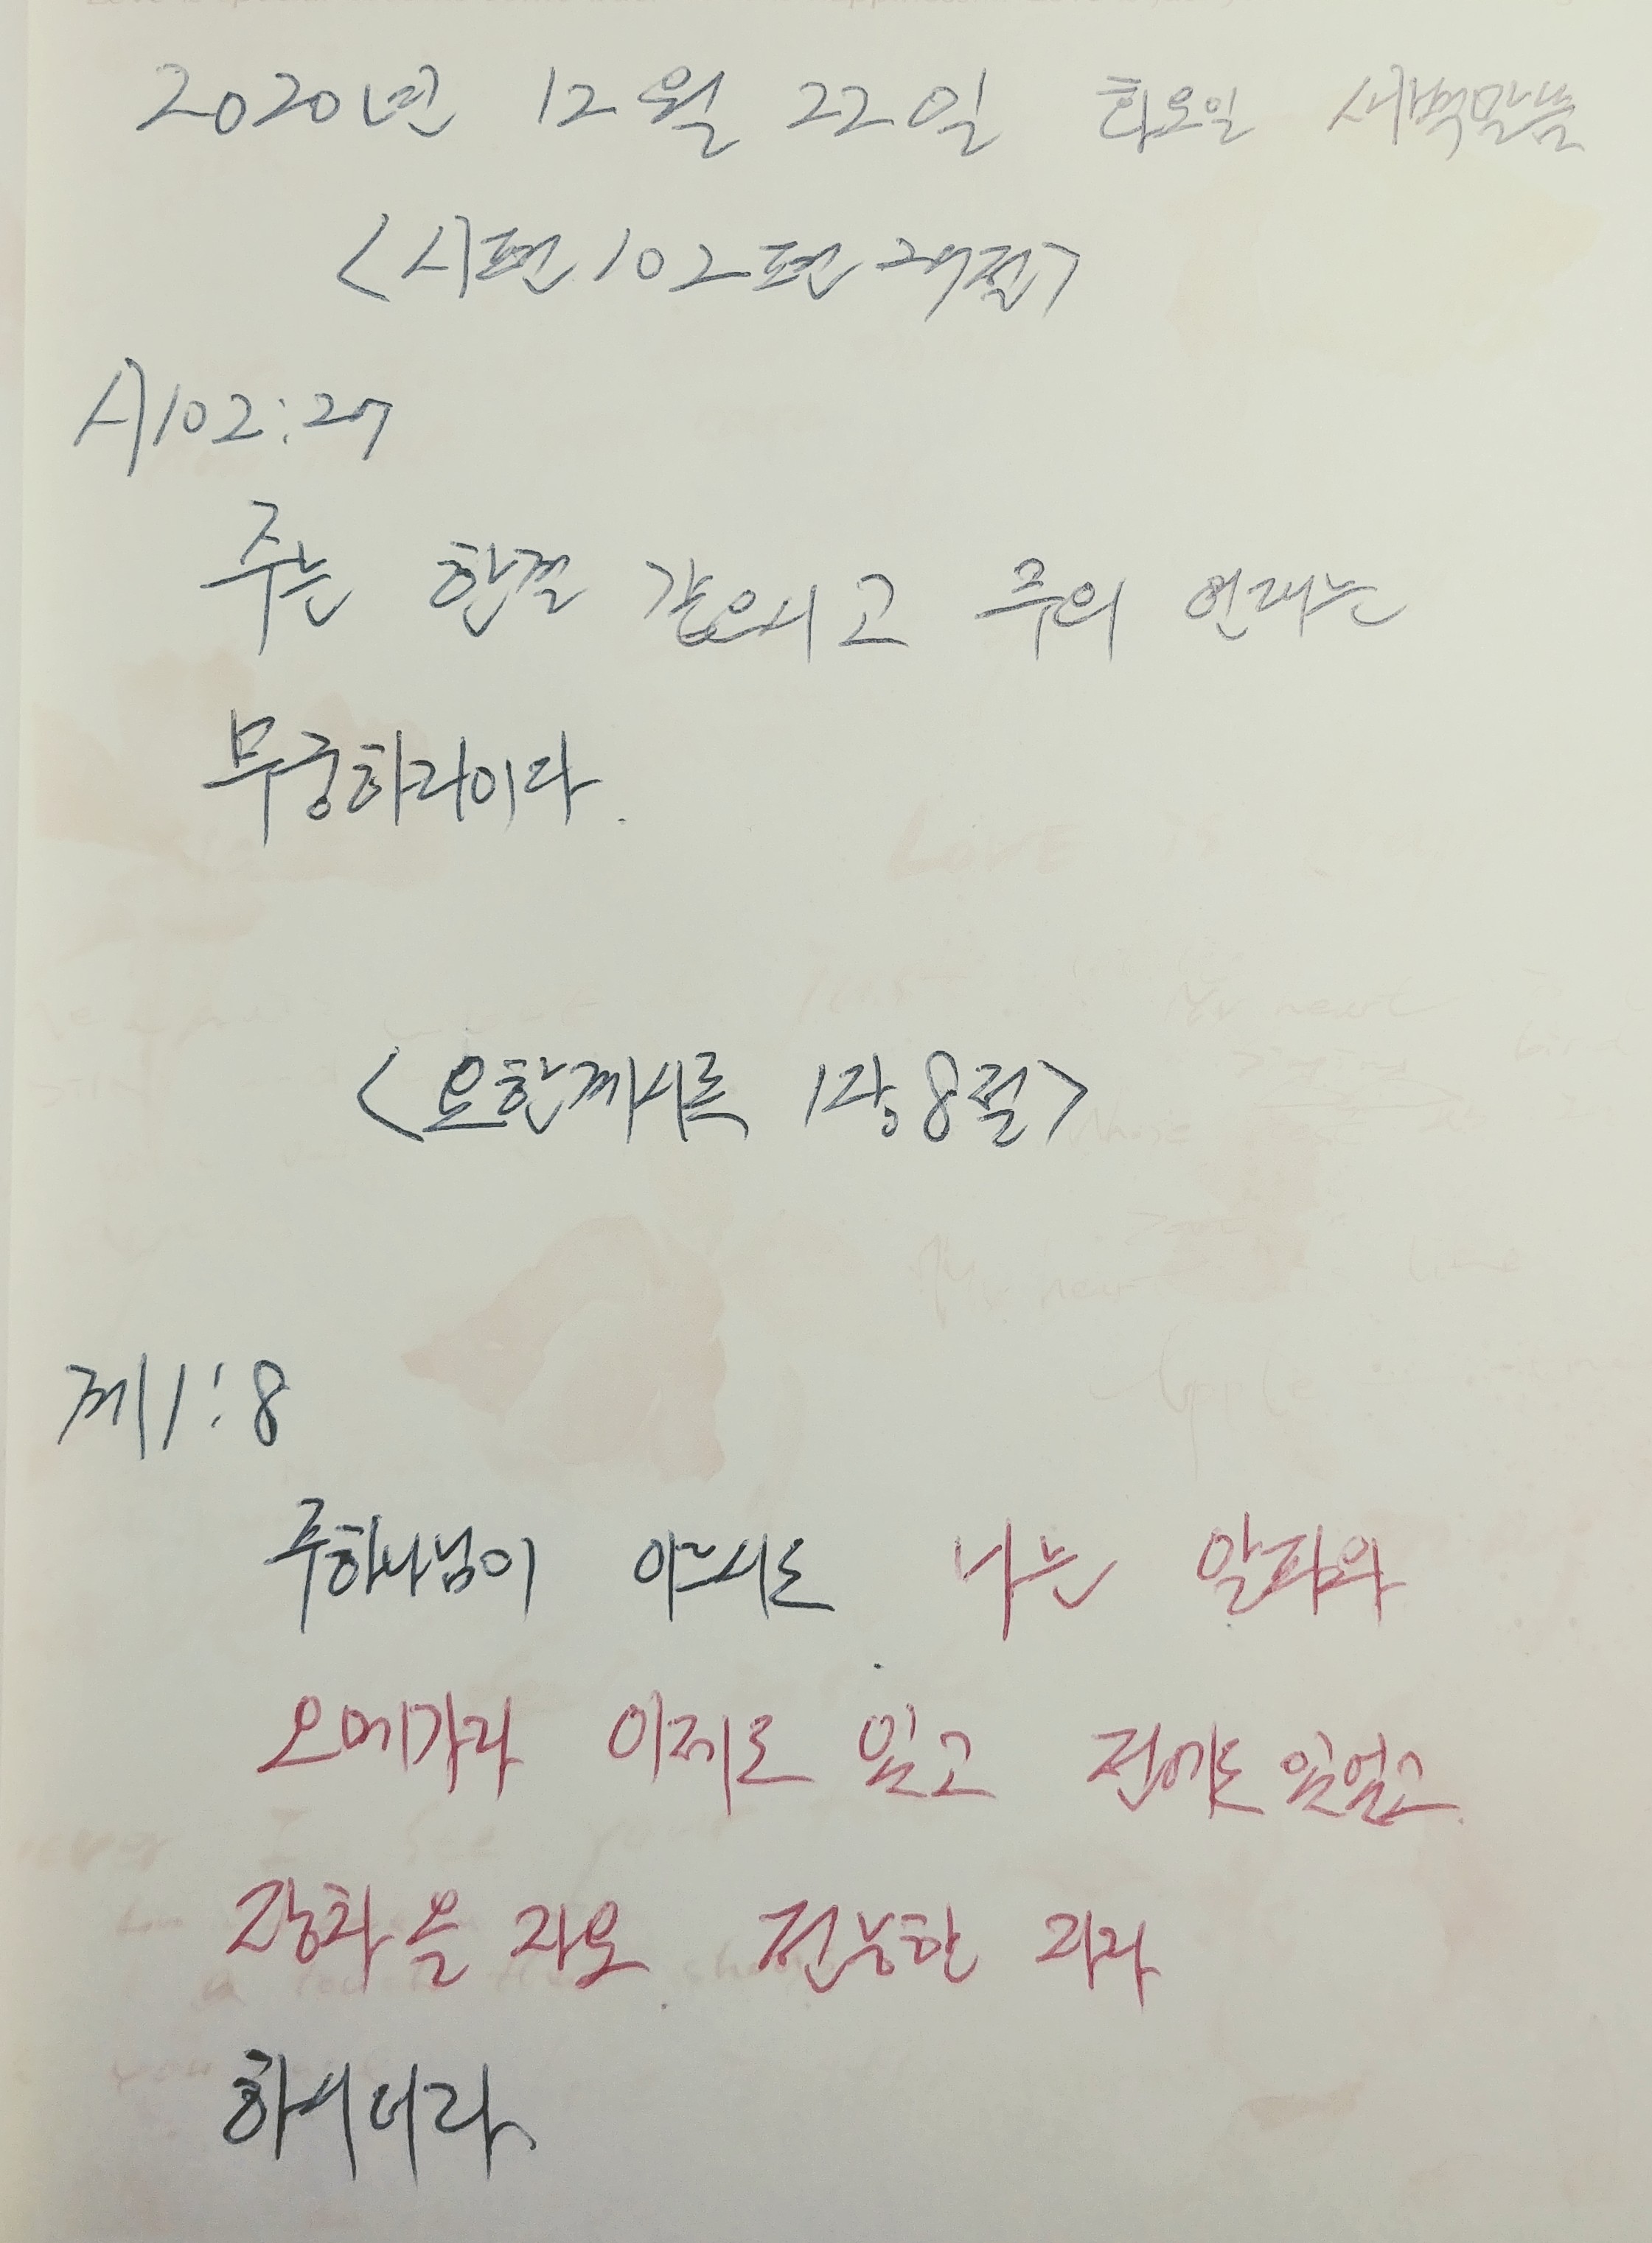 2020년 12월 22일 화요일 새벽말씀
<시편 102편 27절>
시102:27
주는 한결 같으시고 주의 연대는
무궁하리이다.
<요한계시록 1장 8절>
계1:8
주하나님이 이르시되 나는 알파와
오메가라 이제도 있고 전에도 있었고
장차 올 자요 전능한 자라
하시더라